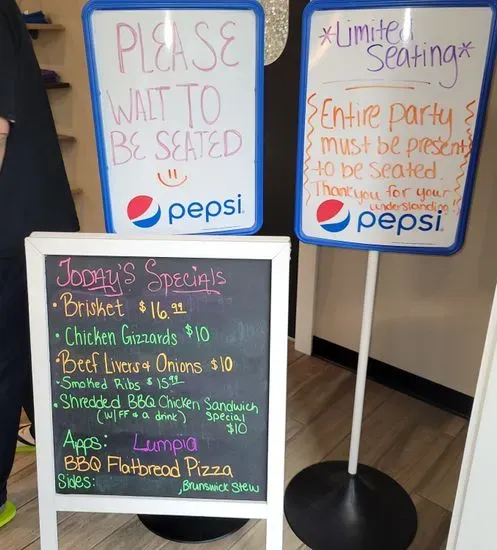 PLEASE
WAIT TO
BE SEATED
pepsi
*Limited
Seating*
Entire party
must be present
to be seated.
Thank you for your
understanding!!
pepsi
TODAY'S Specials
• Brisket $16.99
• Chicken Gizzards $10
• Beef Livers & Onions $10
• Smoked Ribs $15.99
• Shredded BBQ Chicken Sandwich
(w/FF & a drink) Special
$10
Apps: Lumpia
BBQ Flatbread Pizza
Sides: , Brunswick Stew